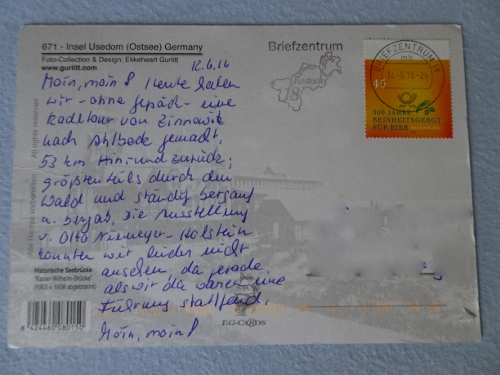 671 - Insel Usedom (Ostsee) Germany
Foto-Collection & Design: Ekkeheart Gurlitt
www.gurlitt.com
12.6.16
Moin, moin! Heute haben
wir - ohne Gepäck - eine
Radeltour von Zinnowitz
nach Ahlbeck gemacht,
53 km Hin- und zurück;
größtenteils durch den
Wald und ständig bergauf
u. bergab. Die Ausstellung
v. Otto Niemeyer-Holstein
konnten wir leider nicht
ansehen, da gerade
als wir da waren eine
Führung stattfand.
Moin, moin!
Briefzentrum
Rostock
18
BRIEFZENTRUM 18
mb
14.6.16-20
45
500 JAHRE
REINHEITSGEBOT
FÜR BIER
All rights reserved
Historische Seebrücke
"Kaiser-Wilhelm-Brücke"
8 424460 080150
EG-CARDS